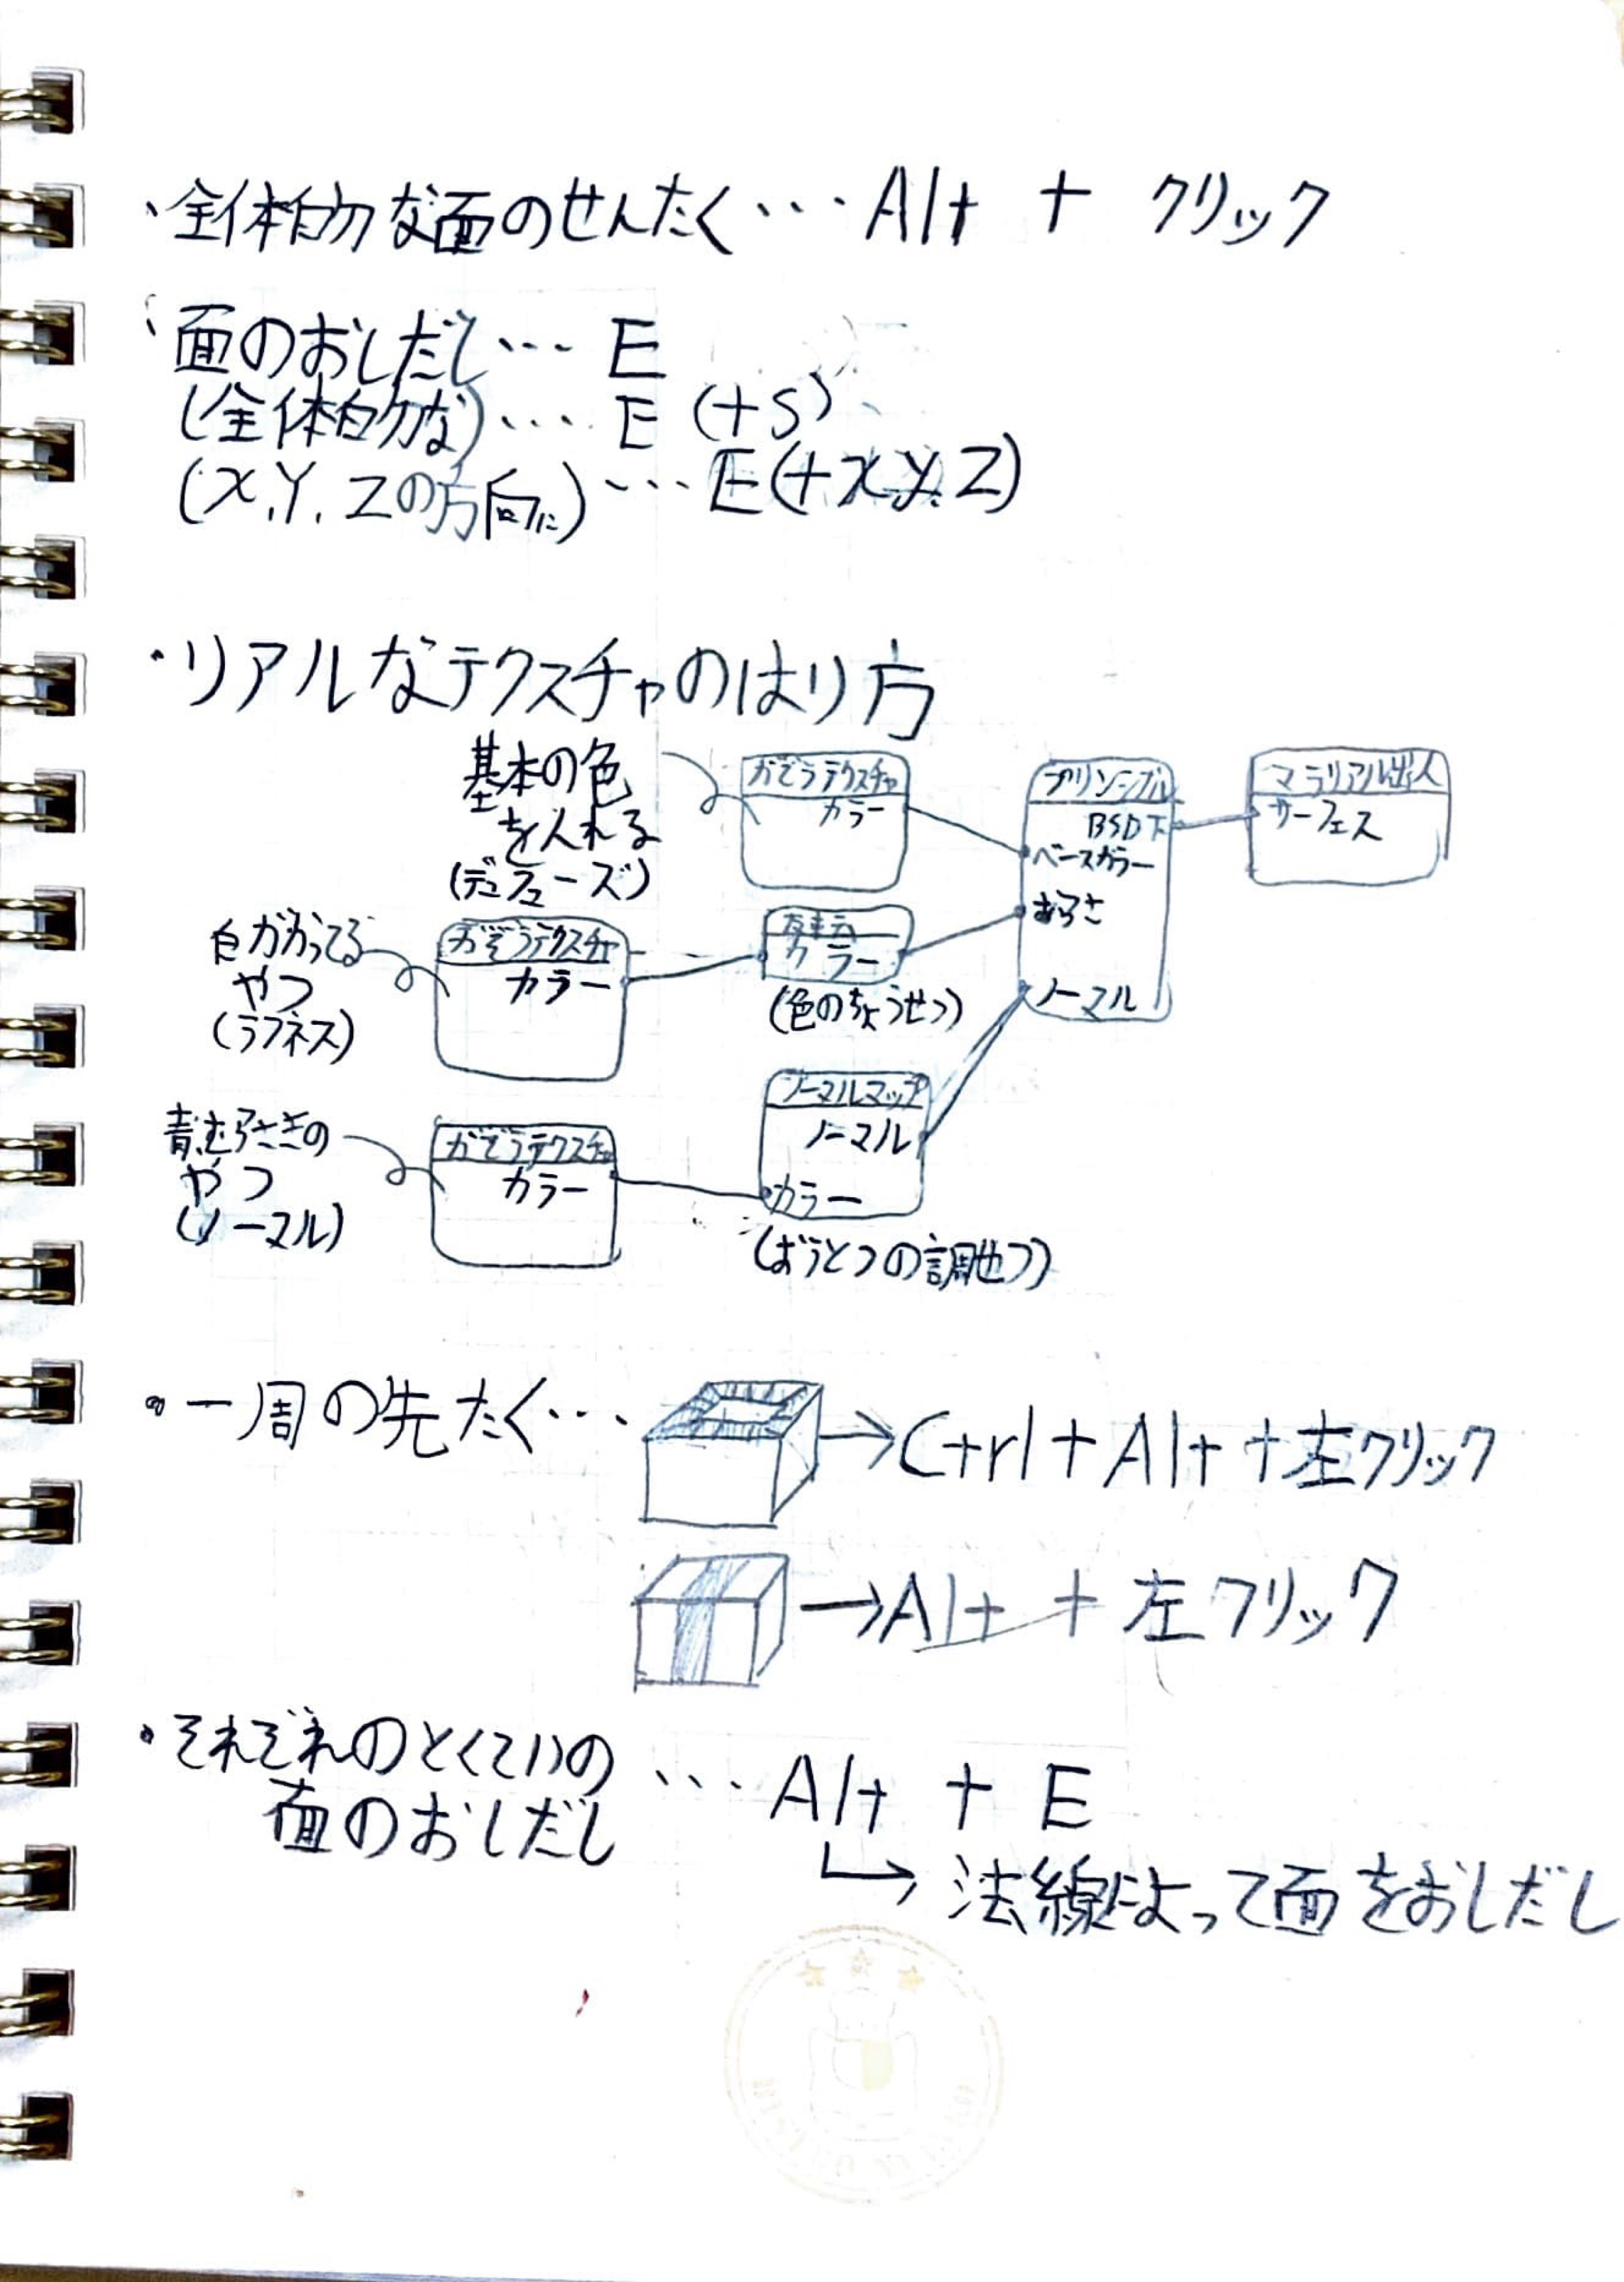 ・全体的な面のせんたく… Alt + クリック
・面のおしだし… E
(全体的な)… E (+S)
(X,Y,Zの方向に)… E(+X,Y,Z)
・リアルなテクスチャのはり方
基本の色
を入れる
(デュフューズ)
がぞうテクスチャ
カラー
プリンシプル
BSDF
ベースカラー
あらさ
ノーマル
マテリアル出入
サーフェス
白がかってる
やつ
(ラフネス)
がぞうテクスチャ
カラー
カラー
(色のちょうせつ)
青むらさきの
やつ
(ノーマル)
がぞうテクスチャ
カラー
ノーマルマップ
ノーマル
カラー
(おうとつの調せつ)
・一周の先たく…
→Ctrl+Alt+左クリック
→Alt + 左クリック
・それぞれのとくていの
面のおしだし
… Alt + E
法線によって面をおしだし